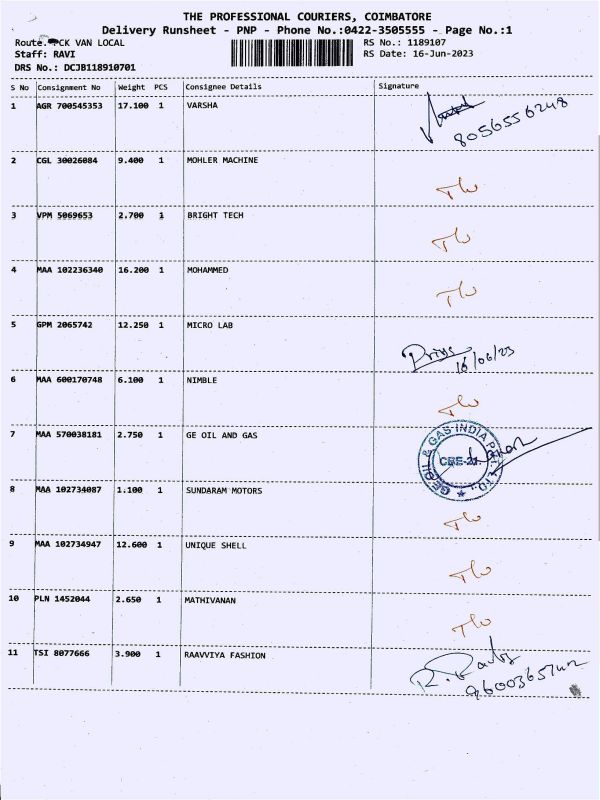 THE PROFESSIONAL COURIERS, COIMBATORE
Delivery Runsheet - PNP - Phone No.:0422-3505555 - Page No.:1
Route. CK VAN LOCAL RS No.: 1189107
Staff: RAVI RS Date: 16-Jun-2023
DRS No.: DCJB118910701
S No Consignment No Weight PCS Consignee Details Signature
1 AGR 700545353 17.100 1 VARSHA
8056556248
2 CGL 30026084 9.400 1 MOHLER MACHINE
3 VPM 5069653 2.700 1 BRIGHT TECH
4 MAA 102236340 16.200 1 MOHAMMED
5 GPM 2065742 12.250 1 MICRO LAB
16/06/23
6 MAA 600170748 6.100 1 NIMBLE
7 MAA 570038181 2.750 1 GE OIL AND GAS
GE OIL & GAS INDIA PVT. LTD.
8 MAA 102734087 1.100 1 SUNDARAM MOTORS
9 MAA 102734947 12.600 1 UNIQUE SHELL
10 PLN 1452044 2.650 1 MATHIVANAN
11 TSI 8077666 3.900 1 RAAVVIYA FASHION